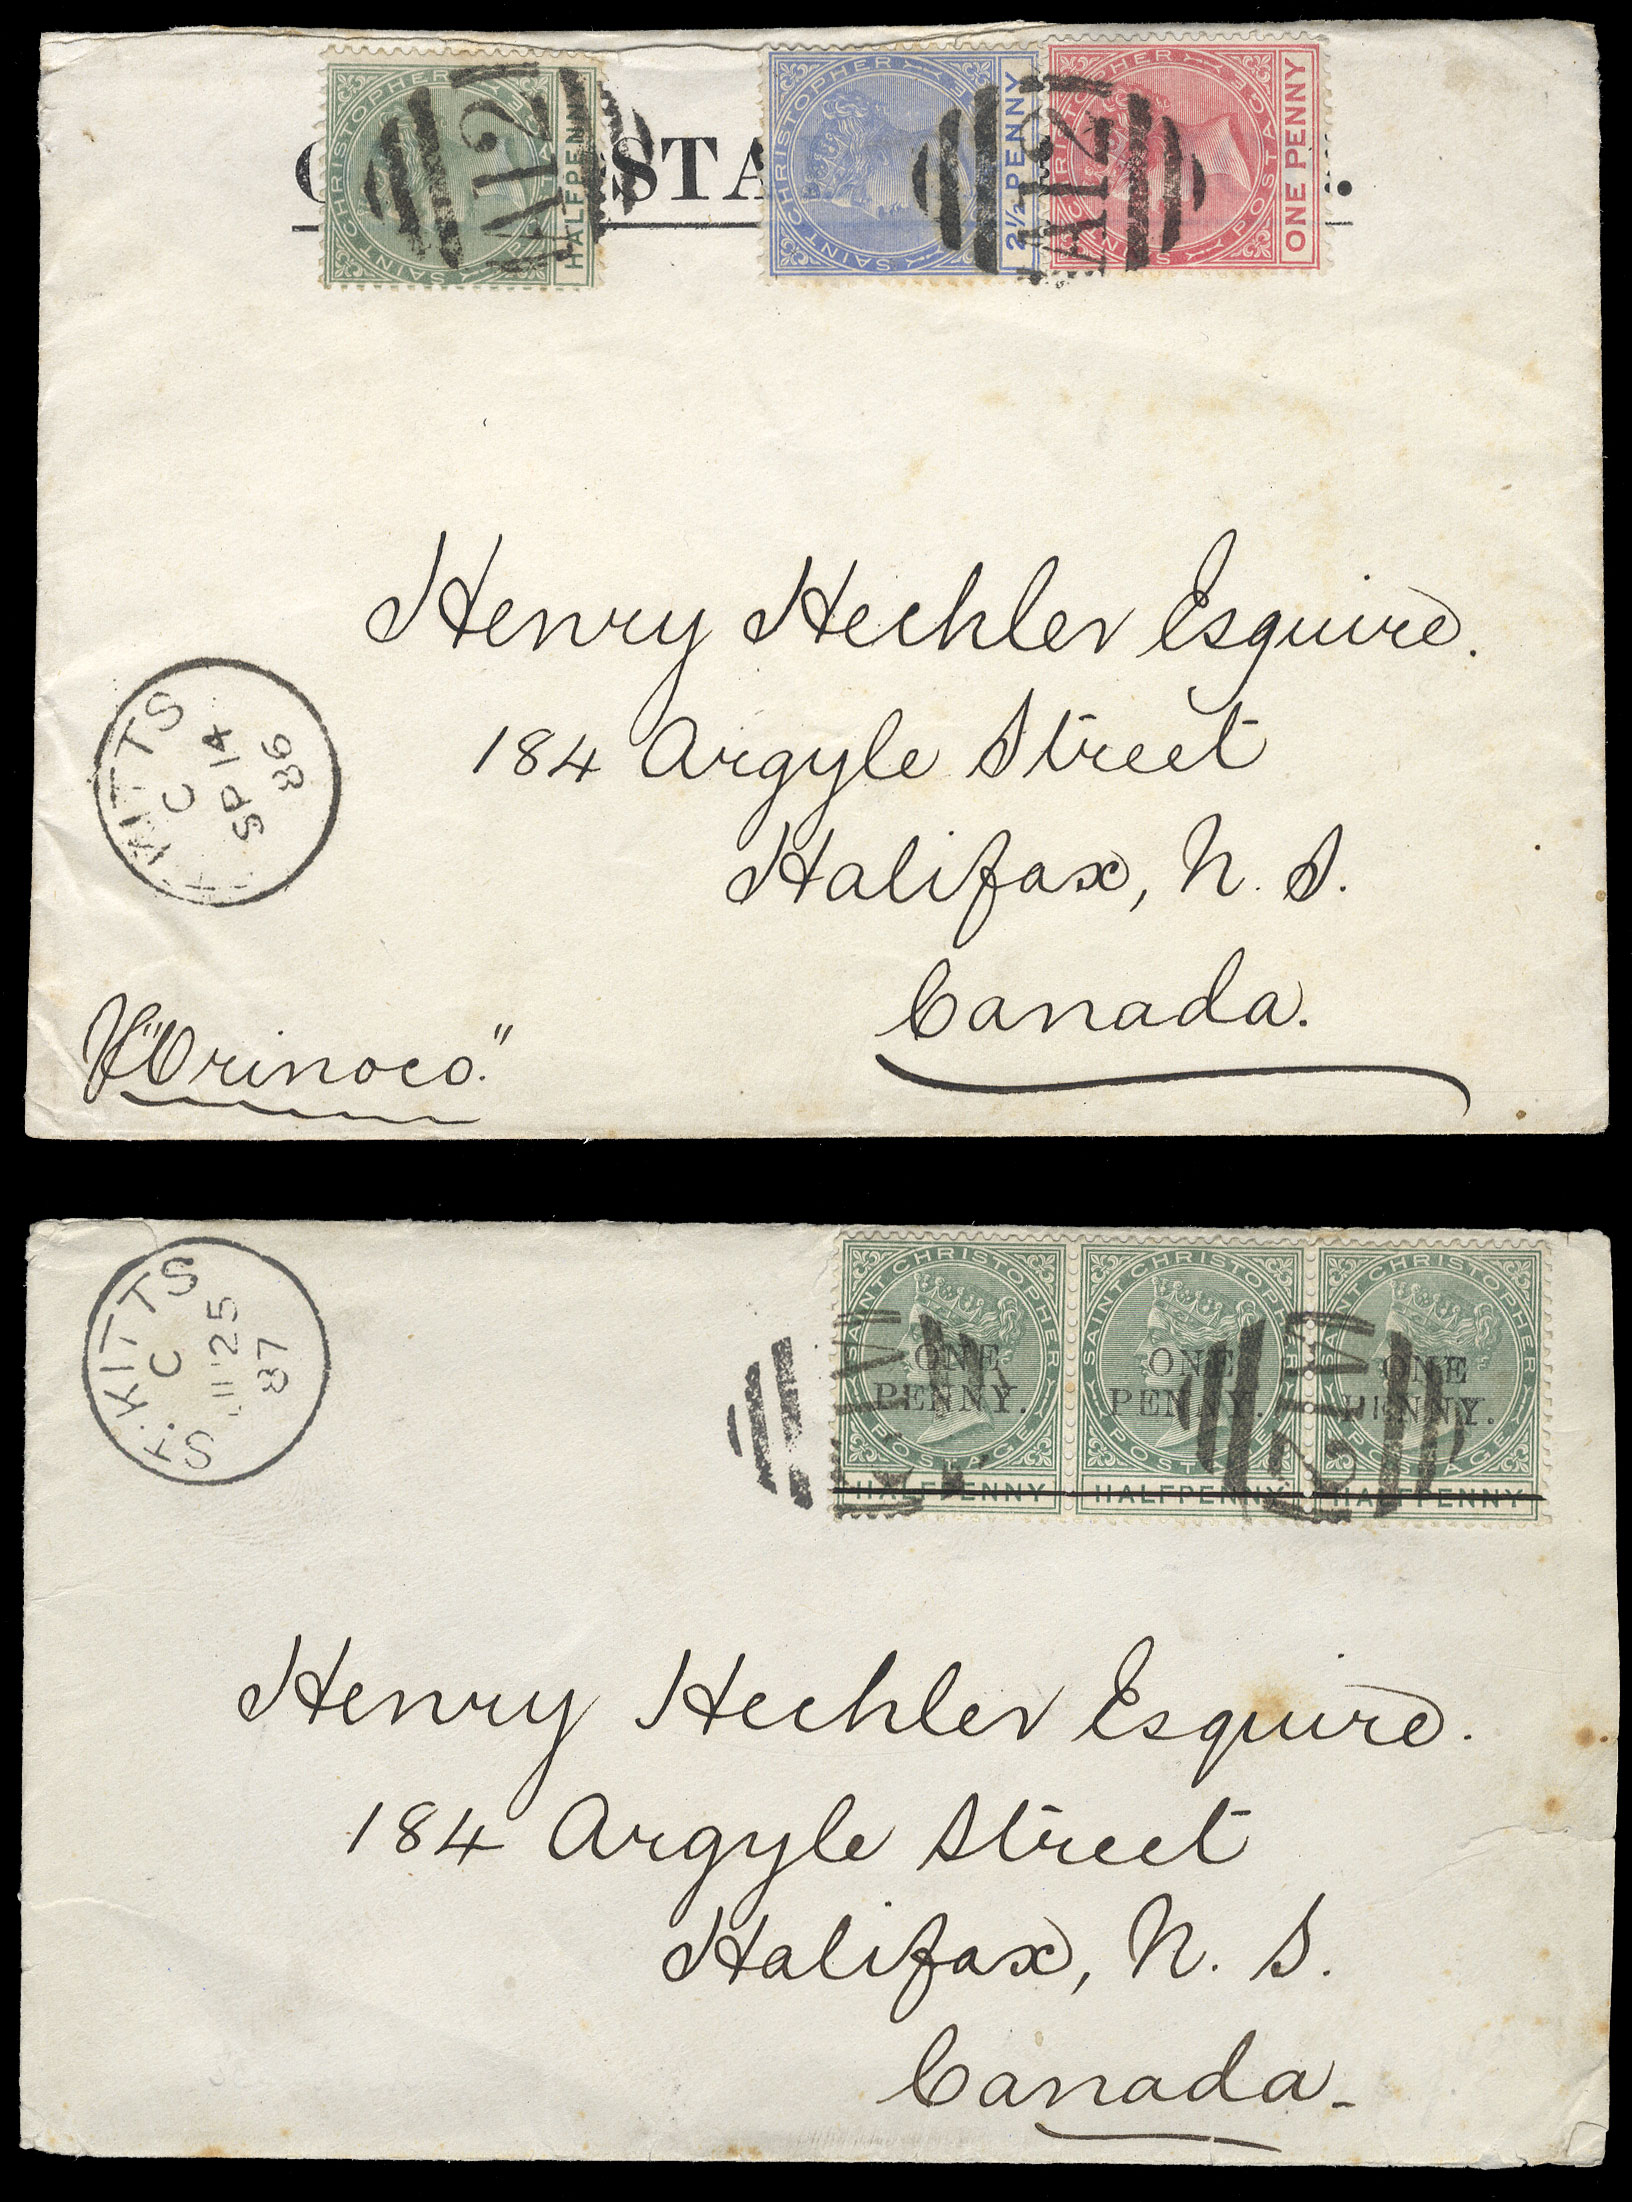 SAINT CHRISTOPHER POSTAGE
HALFPENNY
A12
SAINT CHRISTOPHER POSTAGE
2½ PENNY
SAINT CHRISTOPHER POSTAGE
ONE PENNY
A12
STA
Henry Hechler Esquire.
184 Argyle Street
Halifax, N. S.
Canada.
KITTS
C
SP 14
86
"Orinoco."
ST. KITTS
C
JU 25
87
SAINT CHRISTOPHER POSTAGE
ONE
PENNY.
HALFPENNY
SAINT CHRISTOPHER POSTAGE
ONE
PENNY.
HALFPENNY
SAINT CHRISTOPHER POSTAGE
ONE
PENNY.
HALFPENNY
A12
Henry Hechler Esquire.
184 Argyle Street
Halifax, N. S.
Canada.